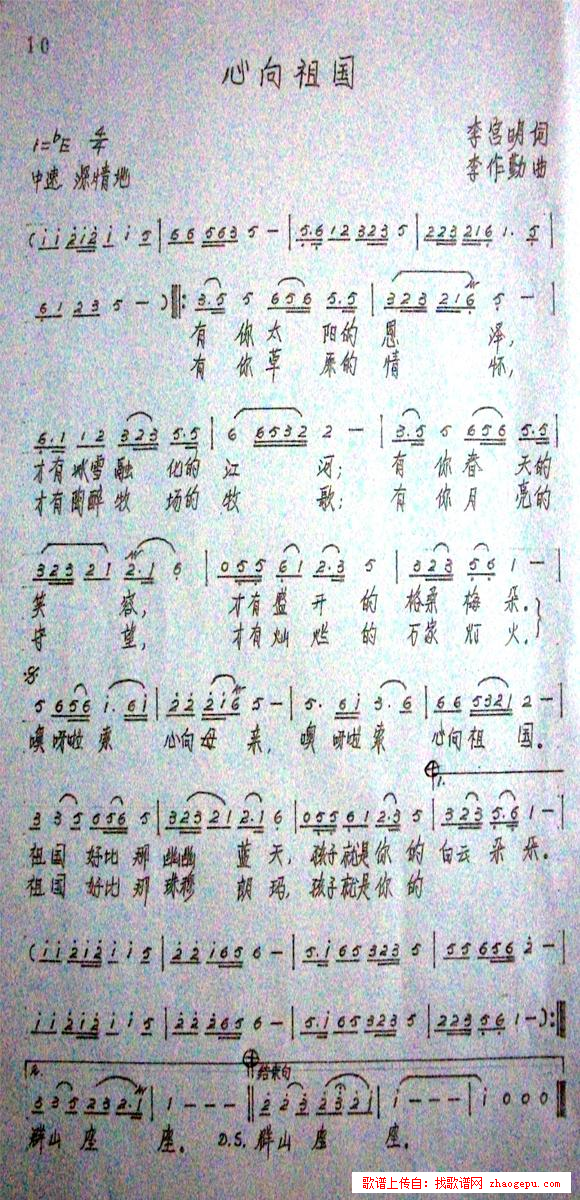 10
心向祖国
1=bE 4/4
李宫明词
中速 深情地
李作勤曲
(i i 2i2i i i 5 | 66 5635 - | 5.612 3235 | 223216 1. 5 |
61 23 5 - ) ‖: 3.5 5 656 5.5 | 323 216 5 - |
有你太阳的恩泽,
有你草原的情怀,
6.1 12 323 5.5 | 6 6532 2 - | 3.5 5 656 5.5 |
才有冰雪融化的江河; 有你春天的
才有陶醉牧场的牧歌; 有你月亮的
323 21 2.1 6 | 055 61 2.3 5 | 323 565 1 - |
笑容, 才有盛开的格桑梅朵。
守望, 才有灿烂的万家灯火。
5 656 i. 6i | 22 2i6 5 - | 5. 6i 3. 6 | 66 5321 2 - |
噢呀啦索 心向母亲, 噢呀啦索 心向祖国。
1.
3 35 656 5 | 323 21 2.1 6 | 055 61 2.3 5 | 323 5.6 1 - |
祖国好比那幽幽蓝天, 孩子就是你的白云朵朵。
祖国好比那珠穆朗玛, 孩子就是你的
(i i 2i2i i 5 | 22 i65 6 - | 5.i65 3235 | 55 656 2 - |
i i 2i2i i 5 | 22 265 6 - | 5.i65 3235 | 223 5.6 1 - ) :‖
2.
结束句
3 35 23 2.1 | 1 - - - ‖ 2 23 232i | i - - - | i 0 0 0 ‖
群山座座。 D.S. 群山座座。
歌谱上传自:找歌谱网
zhaogepu.com